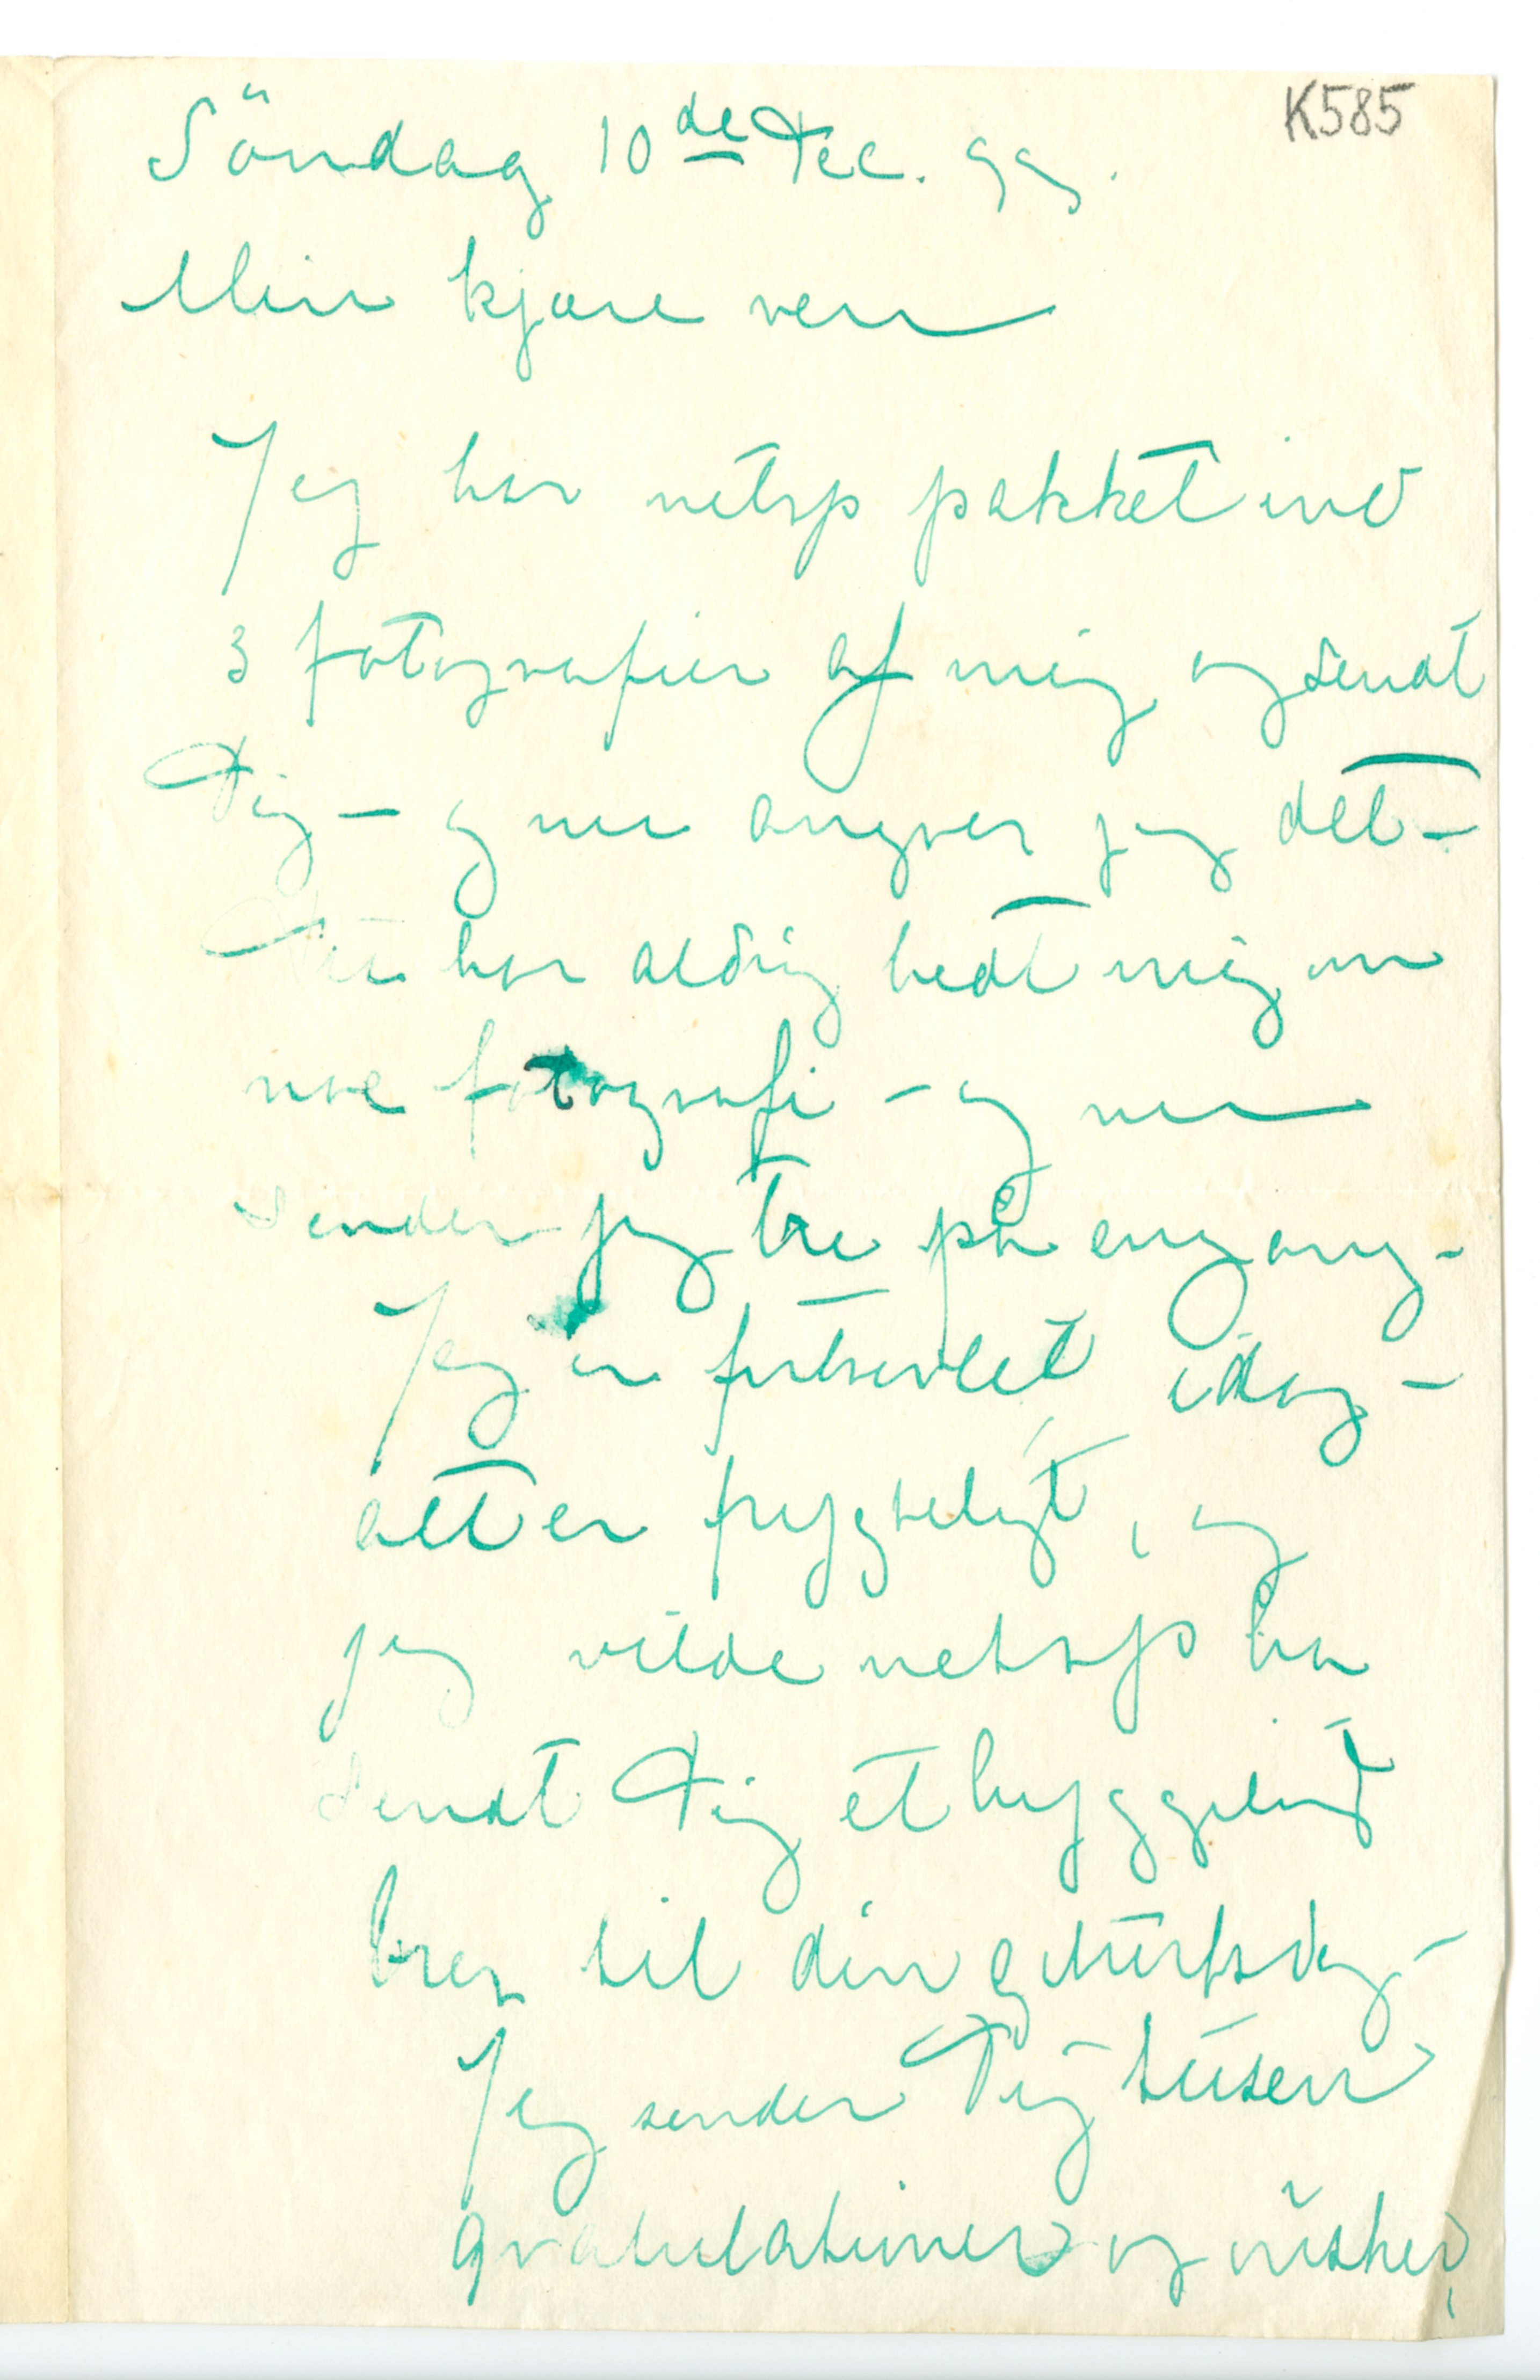 K585
Söndag 10de Dec. 99.
Min kjære ven
Jeg har netop pakket ind
3 fotografier af mig og sendt
Dig – og nu angrer jeg det –
Du har aldrig bedt mig om
noe fotografi – og nu
sender jeg tre på engang –
Jeg er fortvivlet idag –
alt er frygteligt, og
jeg vilde netop ha
sendt Dig et hyggeligt
brev til din geburtsdag –
Jeg sender Dig tusen
gratulationer og önsker,